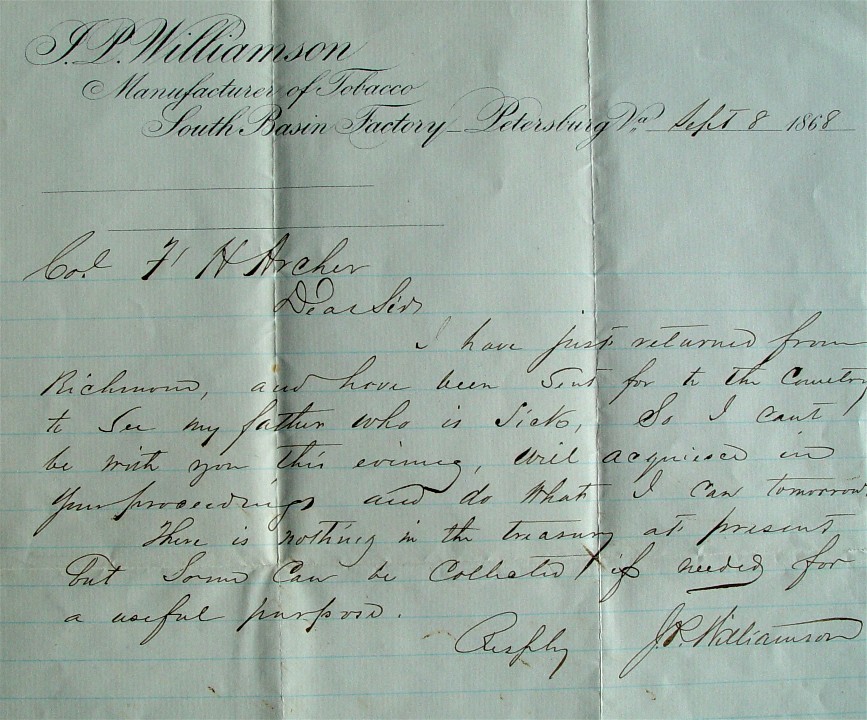 J. P. Williamson
Manufacturer of Tobacco
South Basin Factory Petersburg Va Sept 8 1868
Col F H Archer
Dear Sir
I have just returned from
Richmond, and have been sent for to the Country
to see my father who is sick, So I cant
be with you this evening, will acquiesce in
your proceedings and do what I can tomorrow
There is nothing in the treasury at present
but some can be collected if needed for
a useful purpose.
Respfly J. P. Williamson